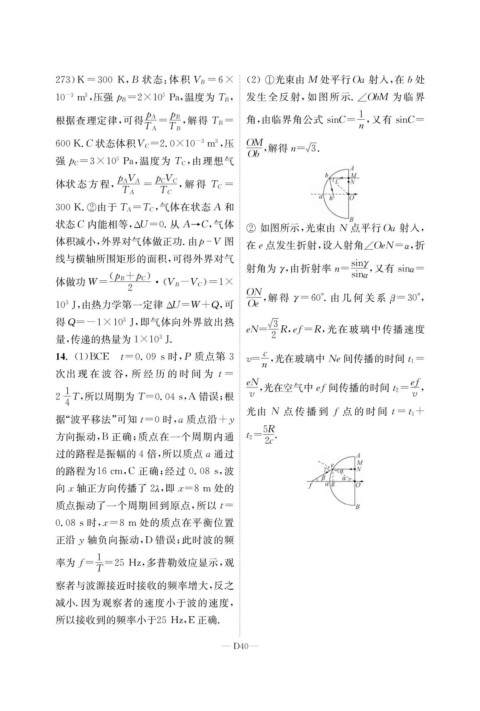 273)K=300 K,B 状态:体积 V_B=6×
10⁻³ m³,压强 p_B=2×10⁵ Pa,温度为 T_B,
根据查理定律,可得 p_A/T_A=p_B/T_B,解得 T_B=
600 K.C 状态体积V_C=2.0×10⁻³ m³,压
强 p_C=3×10⁵ Pa,温度为 T_C,由理想气
体状态方程,p_AV_A/T_A=p_CV_C/T_C,解得 T_C=
300 K.②由于 T_A=T_C,气体在状态 A 和
状态 C 内能相等,ΔU=0.从 A→C,气体
体积减小,外界对气体做正功.由 p-V 图
线与横轴所围矩形的面积,可得外界对气
体做功 W=(p_B+p_C)/2·(V_B-V_C)=1×
10³ J,由热力学第一定律 ΔU=W+Q,可
得 Q=-1×10³ J,即气体向外界放出热
量,传递的热量为 1×10³ J.
14. (1)BCE t=0.09 s 时,P 质点第 3
次出现在波谷,所经历的时间为 t=
2 1/4 T,所以周期为 T=0.04 s,A 错误;根
据“波平移法”可知 t=0 时,a 质点沿+y
方向振动,B 正确;质点在一个周期内通
过的路程是振幅的 4 倍,所以质点 a 通过
的路程为16 cm,C 正确;经过 0.08 s,波
向 x 轴正方向传播了 2λ,即 x=8 m 处的
质点振动了一个周期回到原点,所以 t=
0.08 s 时,x=8 m 处的质点在平衡位置
正沿 y 轴负向振动,D 错误;此时波的频
率为 f=1/T=25 Hz,多普勒效应显示,观
察者与波源接近时接收的频率增大,反之
减小.因为观察者的速度小于波的速度,
所以接收到的频率小于25 Hz,E 正确.
(2) ①光束由 M 处平行Oa 射入,在 b 处
发生全反射,如图所示.∠ObM 为临界
角,由临界角公式 sinC=1/n,又有 sinC=
OM/Ob,解得 n=√3.
A
b M
C N
a b' O
B
② 如图所示,光束由 N 点平行Oa 射入,
在 e 点发生折射,设入射角∠OeN=α,折
射角为 γ,由折射率 n=sinγ/sinα,又有 sinα=
ON/Oe,解得 γ=60°.由几何关系 β=30°,
eN=√3/2 R,ef=R,光在玻璃中传播速度
v=c/n,光在玻璃中 Ne 间传播的时间 t₁=
eN/v,光在空气中 ef 间传播的时间 t₂=ef/v,
光由 N 点传播到 f 点的时间 t=t₁+
t₂=5R/2c.
A
M
e α N
β α
f a R O
B
— D40 —